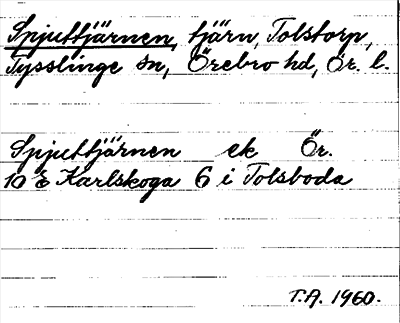 Spjuttjärnen, tjärn, Tolstorp,
Tysslinge sn, Örebro hd, Ör. l.
Spjuttjärnen ek Ör.
10 E Karlskoga 6 i Tolsboda
T.A. 1960.